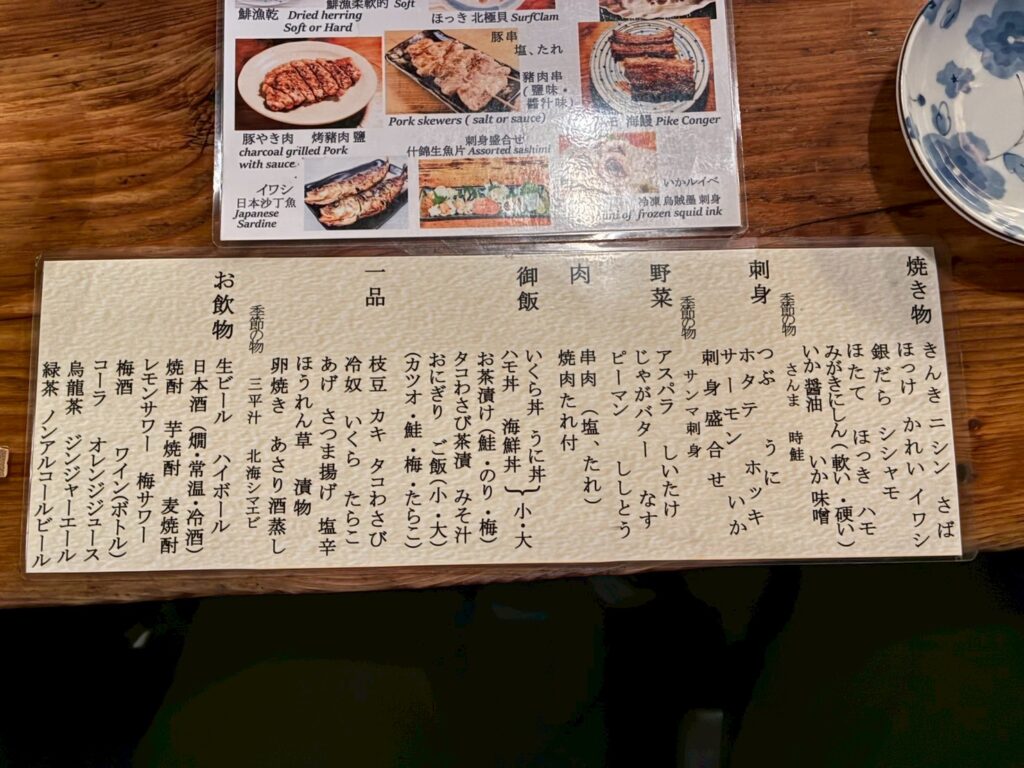 鯡漁乾 Dried herring
Soft or Hard
鯡漁柔軟的 Soft
ほっき 北極貝 SurfClam
豚串
塩、たれ
豬肉串
(鹽味・
醬汁味)
Pork skewers ( salt or sauce)
海鰻 Pike Conger
豚やき肉 烤豬肉 鹽
charcoal grilled Pork
with sauce
刺身盛合せ
什錦生魚片 Assorted sashimi
イワシ
日本沙丁魚
Japanese
Sardine
いかルイベ
冷凍 烏賊墨 刺身
of frozen squid ink
焼き物
きんき ニシン さば
ほっけ かれい イワシ
銀だら シシャモ
ほたて ほっき ハモ
みがきにしん(軟い・硬い)
いか醤油 いか味噌
季節の物
さんま 時鮭
刺身
つぶ うに
ホタテ ホッキ
サーモン いか
刺身盛合せ
季節の物
サンマ刺身
野菜
アスパラ しいたけ
じゃがバター なす
ピーマン ししとう
肉
串肉 (塩、たれ)
焼肉たれ付
御飯
いくら丼 うに丼
ハモ丼 海鮮丼 }小・大
お茶漬け(鮭・のり・梅)
タコわさび茶漬 みそ汁
おにぎり ご飯(小・大)
(カツオ・鮭・梅・たらこ)
一品
枝豆 カキ タコわさび
冷奴 いくら たらこ
あげ さつま揚げ 塩辛
ほうれん草 漬物
卵焼き あさり酒蒸し
季節の物
三平汁 北海シマエビ
お飲物
生ビール ハイボール
日本酒(燗・常温・冷酒)
焼酎 芋焼酎 麦焼酎
レモンサワー 梅サワー
梅酒 ワイン(ボトル)
コーラ オレンジジュース
烏龍茶 ジンジャーエール
緑茶 ノンアルコールビール